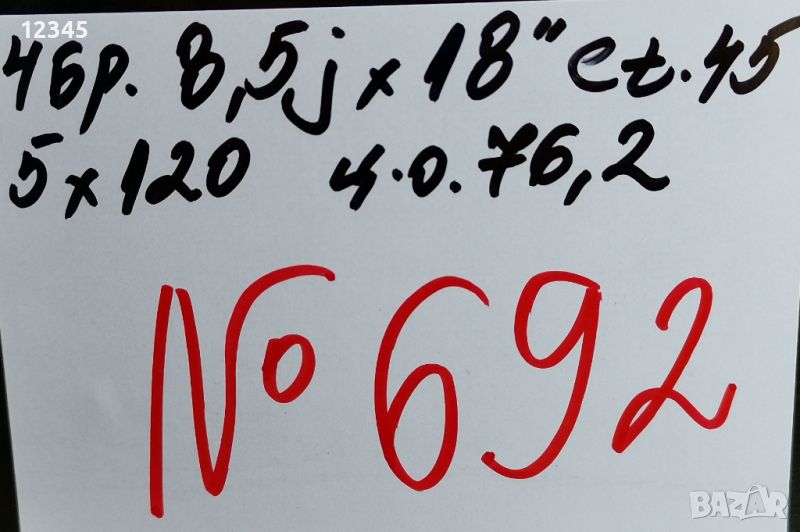 12345
4бр. 8,5j x 18" et. 45
5 x 120 ц.о. 76,2
№ 692
BAZAR